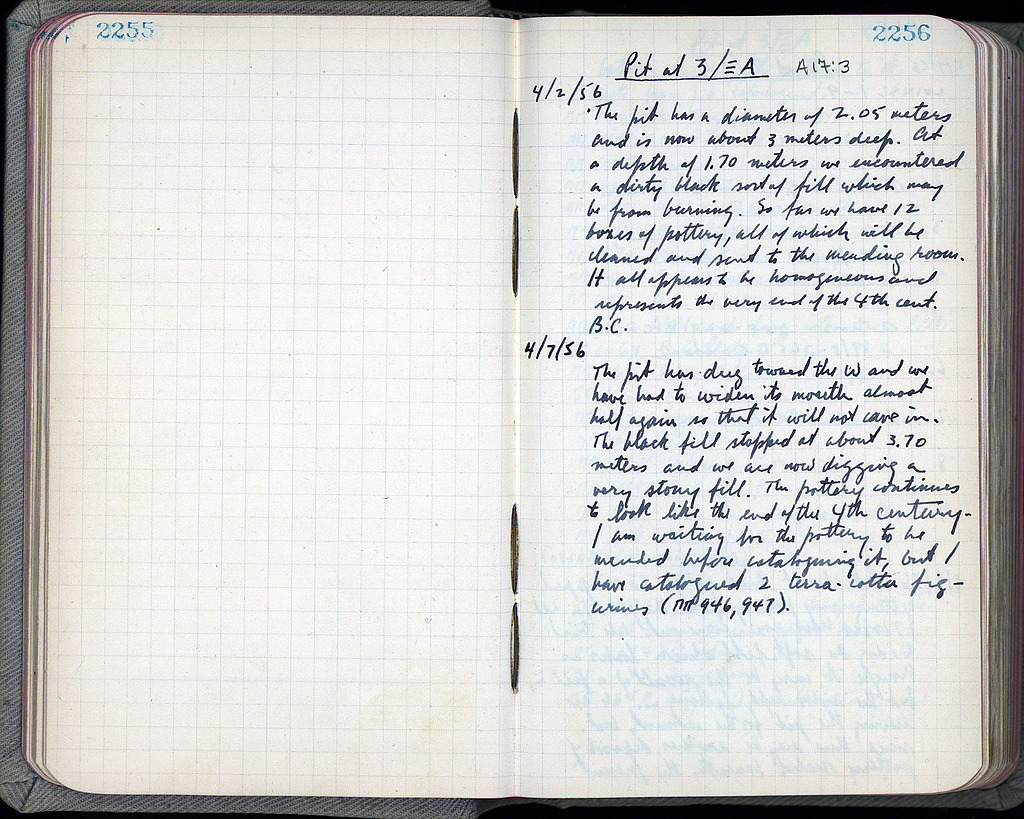 2255
2256
Pit at 3/ΞA A17:3
4/2/56
The pit has a diameter of 2.05 meters
and is now about 3 meters deep. At
a depth of 1.70 meters we encountered
a dirty black sort of fill which may
be from burning. So far we have 12
boxes of pottery, all of which will be
cleaned and sent to the mending room.
It all appears to be homogeneous and
represents the very end of the 4th cent.
B.C.
4/7/56
The pit has dug toward the W and we
have had to widen its mouth almost
half again so that it will not cave in.
The black fill stopped at about 3.70
meters and we are now digging a
very stony fill. The pottery continues
to look like the end of the 4th century.
I am waiting for the pottery to be
mended before cataloguing it, but I
have catalogued 2 terra-cotta fig-
urines (ΠΠ 946, 947).